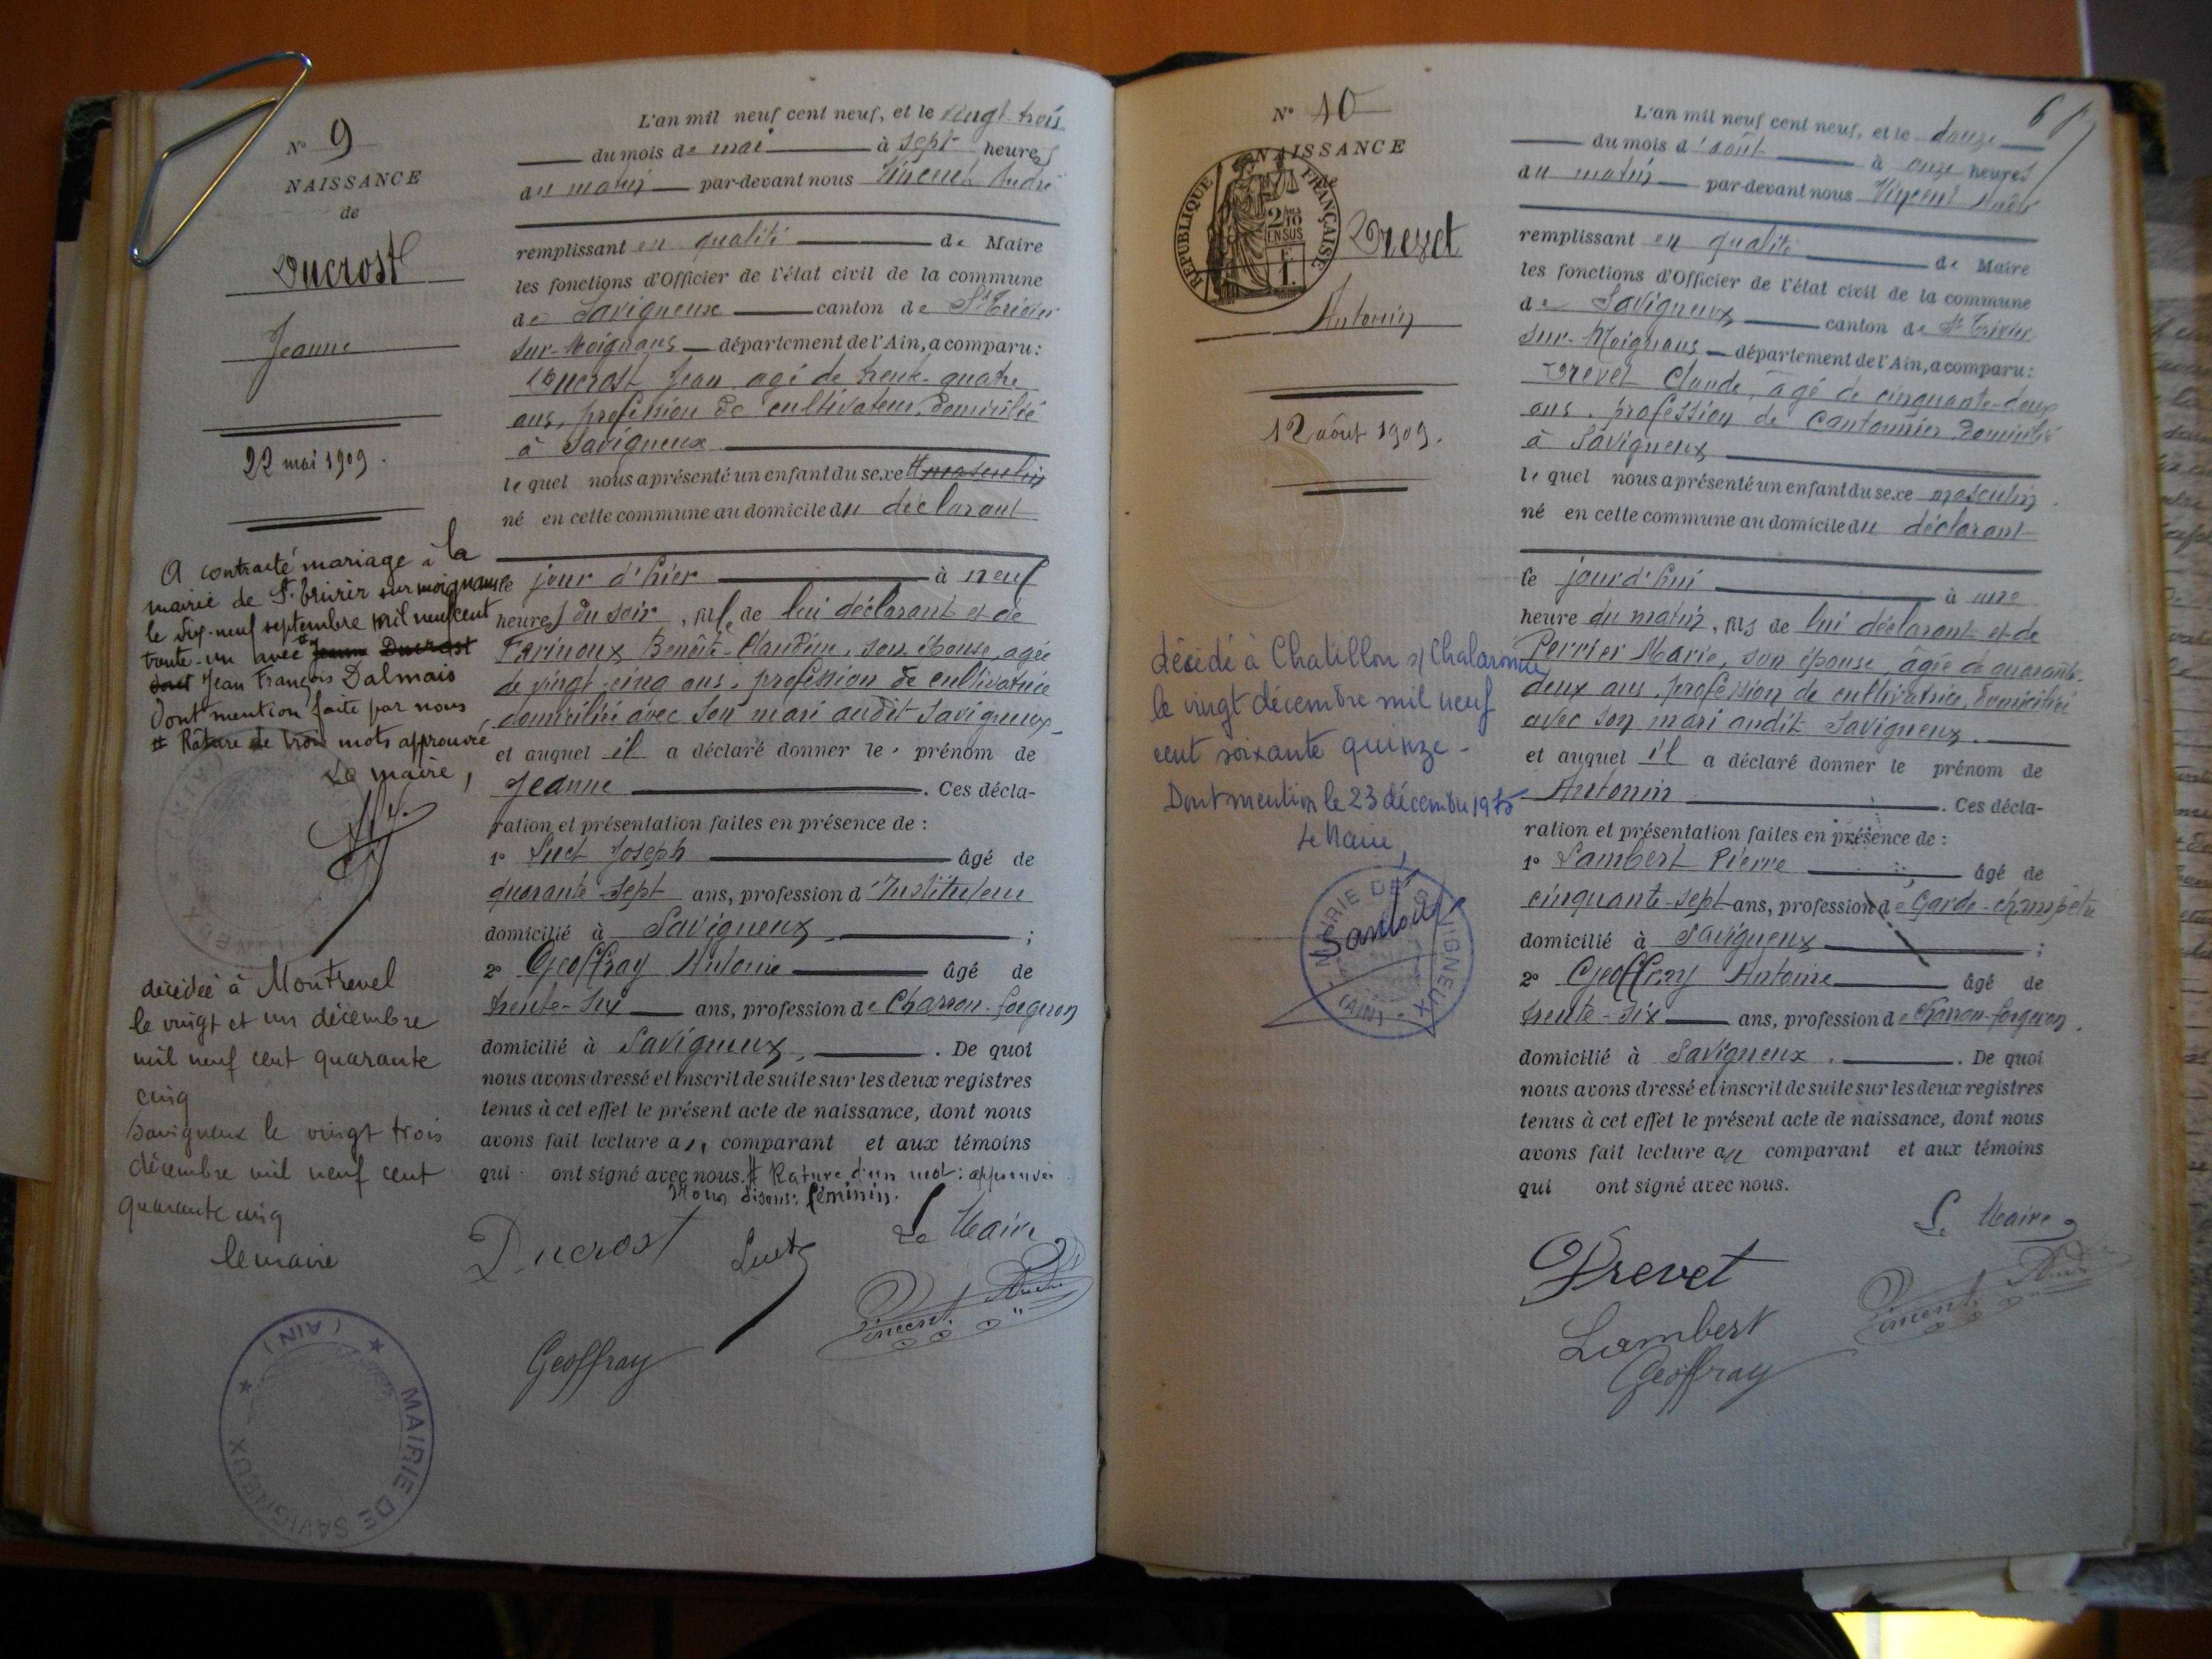 N° 9
NAISSANCE
de
Ducrost
Jeanne
22 mai 1909.
A contracté mariage à la
mairie de St. Trivier sur moignans
le dix-neuf septembre mil neuf cent
trente-un avec Jeanne Ducrost
Jean François Dalmais
Dont mention faite par nous
# Rature de trois mots approuvée
Le maire,
décédée à Montrevel
le vingt et un décembre
mil neuf cent quarante
cinq
Savigneux le vingt trois
décembre mil neuf cent
quarante cinq
le maire
MAIRIE DE SAVIGNEUX ★ (AIN) ★
L'an mil neuf cent neuf, et le vingt-trois
du mois de mai à sept heures
du matin par-devant nous Vincent André
remplissant en qualité de Maire
les fonctions d'Officier de l'état civil de la commune
de Savigneux canton de St Trivier
sur-Moignans département de l'Ain, a comparu:
Ducrost Jean agé de trente-quatre
ans, profession de cultivateur, domicilié
à Savigneux
lequel nous a présenté un enfant du sexe # masculin
né en cette commune au domicile du déclarant
le jour d'hier à neuf
heures du soir, fille de lui déclarant et de
Benoîte-Claudine, son épouse, agée
de vingt-cinq ans, profession de cultivatrice
domiciliée avec son mari audit Savigneux
et auquel il a déclaré donner le prénom de
Jeanne. Ces décla-
ration et présentation faites en présence de :
1° Suet Joseph âgé de
quarante-sept ans, profession d'Instituteur
domicilié à Savigneux ;
2° Geoffray Antoine âgé de
trente-six ans, profession de Charron-forgeron
domicilié à Savigneux. De quoi
nous avons dressé et inscrit de suite sur les deux registres
tenus à cet effet le présent acte de naissance, dont nous
avons fait lecture au comparant et aux témoins
qui ont signé avec nous. # Rature d'un mot: approuvée
Nous disons: féminin.
Le Maire
Ducrost Suet
Vincent André
Geoffray
N° 10
NAISSANCE
de
RÉPUBLIQUE FRANÇAISE
2/10 EN SUS
Drevet
Antonin
12 août 1909.
décédé à Chatillon s/ Chalaronne
le vingt décembre mil neuf
cent soixante quinze -
Dont mention le 23 décembre 1975
Le Maire,
MAIRIE DE SAVIGNEUX (AIN)
6
L'an mil neuf cent neuf, et le douze
du mois d'août à onze heures
du matin par-devant nous Vincent André
remplissant en qualité de Maire
les fonctions d'Officier de l'état civil de la commune
de Savigneux canton de St Trivier
sur-Moignans département de l'Ain, a comparu:
Drevet Claude, âgé de cinquante-deux
ans, profession de Cantonnier domicilié
à Savigneux
lequel nous a présenté un enfant du sexe masculin.
né en cette commune au domicile du déclarant
le jourd'hui à une
heure du matin, fils de lui déclarant et de
Perrier Marie, son épouse, âgée de quarante-
deux ans, profession de cultivatrice, domiciliée
avec son mari audit Savigneux.
et auquel il a déclaré donner le prénom de
Antonin. Ces décla-
ration et présentation faites en présence de :
1° Lambert Pierre âgé de
cinquante-sept ans, profession de Garde-champêtre
domicilié à Savigneux ;
2° Geoffray Antoine âgé de
trente-six ans, profession de Charron-forgeron.
domicilié à Savigneux. De quoi
nous avons dressé et inscrit de suite sur les deux registres
tenus à cet effet le présent acte de naissance, dont nous
avons fait lecture au comparant et aux témoins
qui ont signé avec nous.
Le Maire
Drevet
Vincent André
Lambert
Geoffray